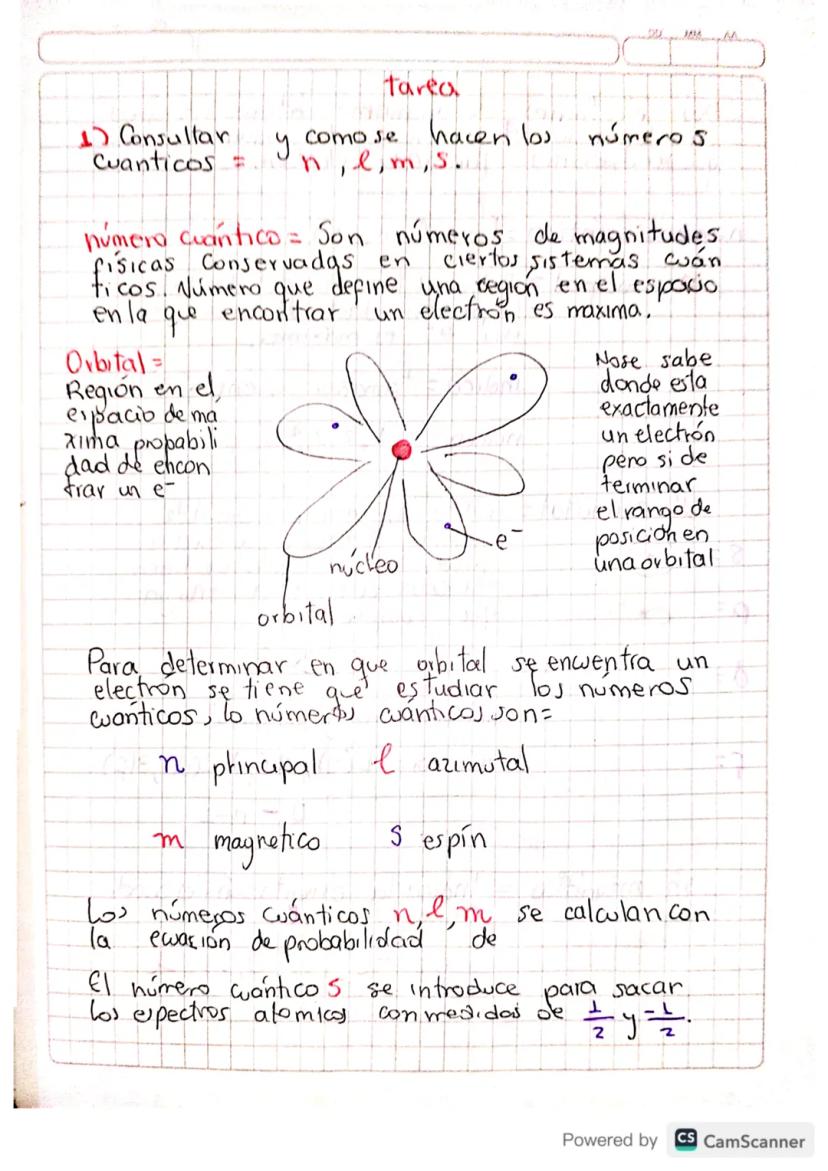 DD MM AA
tarea
1) Consultar y como se hacen los números
cuanticos = n, l, m, s.
número cuántico = Son números de magnitudes
físicas conservadas en ciertos sistemas cuán
ticos. Número que define una región en el espacio
en la que encontrar un electrón es maxima.
Orbital =
Región en el
espacio de ma
xima probabili
dad de encon
trar un e-
Nose sabe
donde esta
exactamente
un electrón
pero si de
terminar
el rango de
posición en
una orbital
e-
núcleo
orbital
Para determinar en que orbital se encuentra un
electrón se tiene que estudiar los numeros
cuánticos, lo números cuánticos son=
n principal l azimutal
m magnetico s espín
Los números cuánticos n, l, m se calculan con
la ecuación de probabilidad de
El número cuántico s se introduce para sacar
los espectros atomicos con medidas de 1/2 y -1/2.
Powered by CS CamScanner